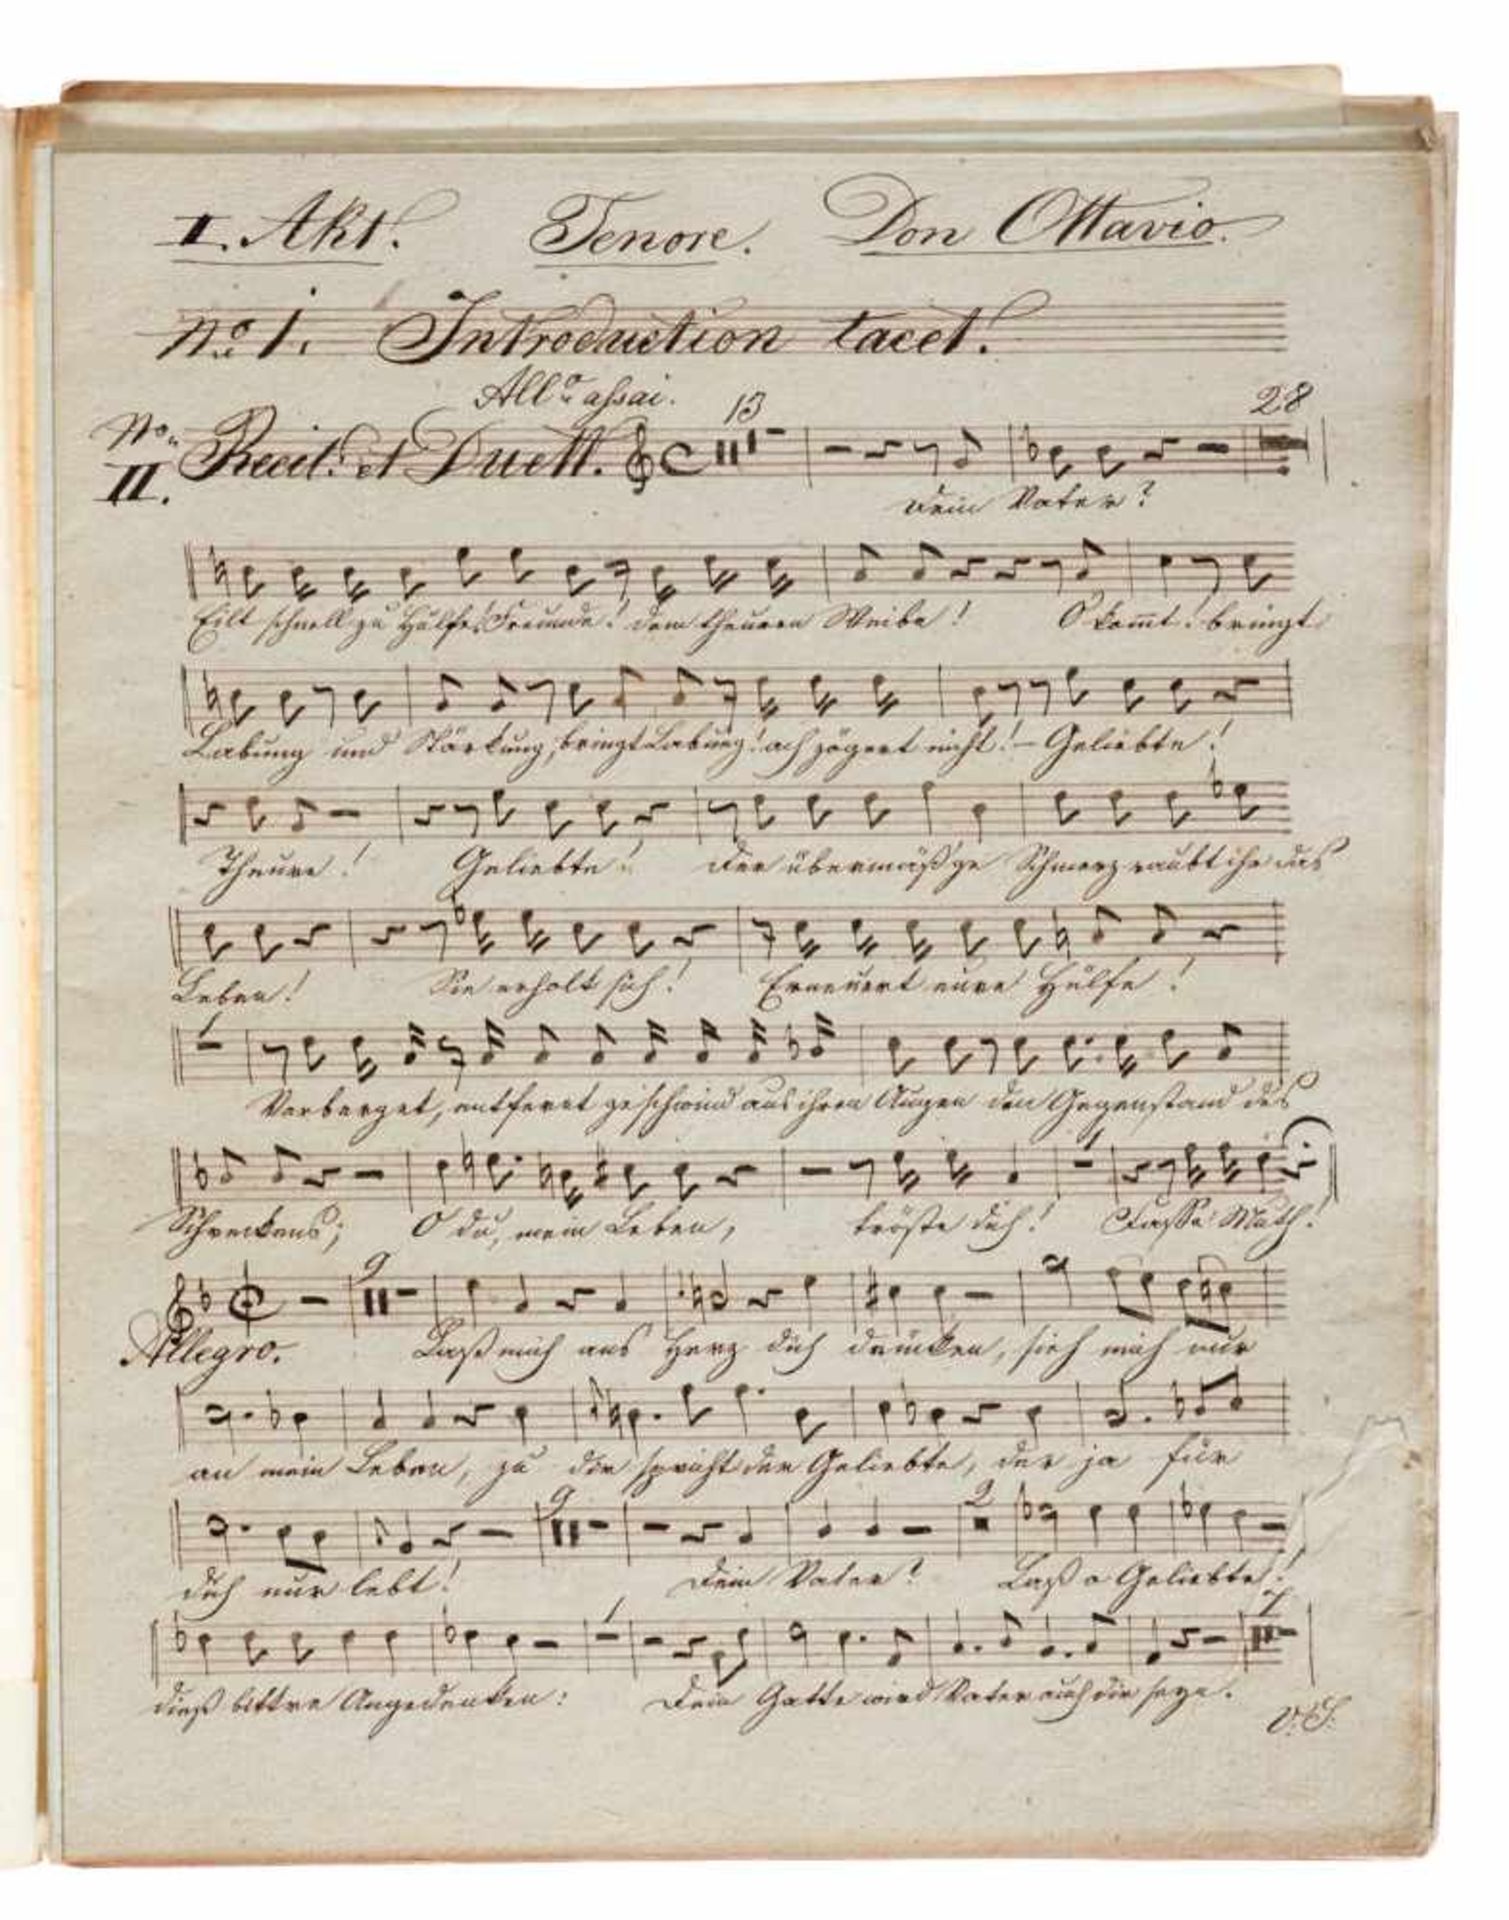 I. Akt. Tenore. Don Ottavio.
No 1. Introduction tacet.
Allo assai.
No II. Recit: et Duett. 13 28
Dein Vater?
Eilt schnell zu Hülfe! Freunde! dem theuren Weibe! O kommt! bringt
Labung und Stärkung, bringt Labung! ach zögert nicht! – Geliebte!
Theure! Geliebte! der übermäß'ge Schmerz raubt ihr das
Leben! Sie erholt sich! Erneuert eure Hülfe!
1
Verberget, entfernt geschwind aus ihren Augen den Gegenstand des
1
Schreckens; O du, mein Leben, tröste dich! Fasse Muth!
9
Allegro. Laß mich ans Herz dich drücken, sieh mich nur
an mein Leben, zu dir spricht der Geliebte, der ja für
9 2
dich nur lebt! Dein Vater? Laß o Geliebte!
1 7
dieß bittre Angedenken: Dein Gatte wird Vater auch dir seyn.
V: S: